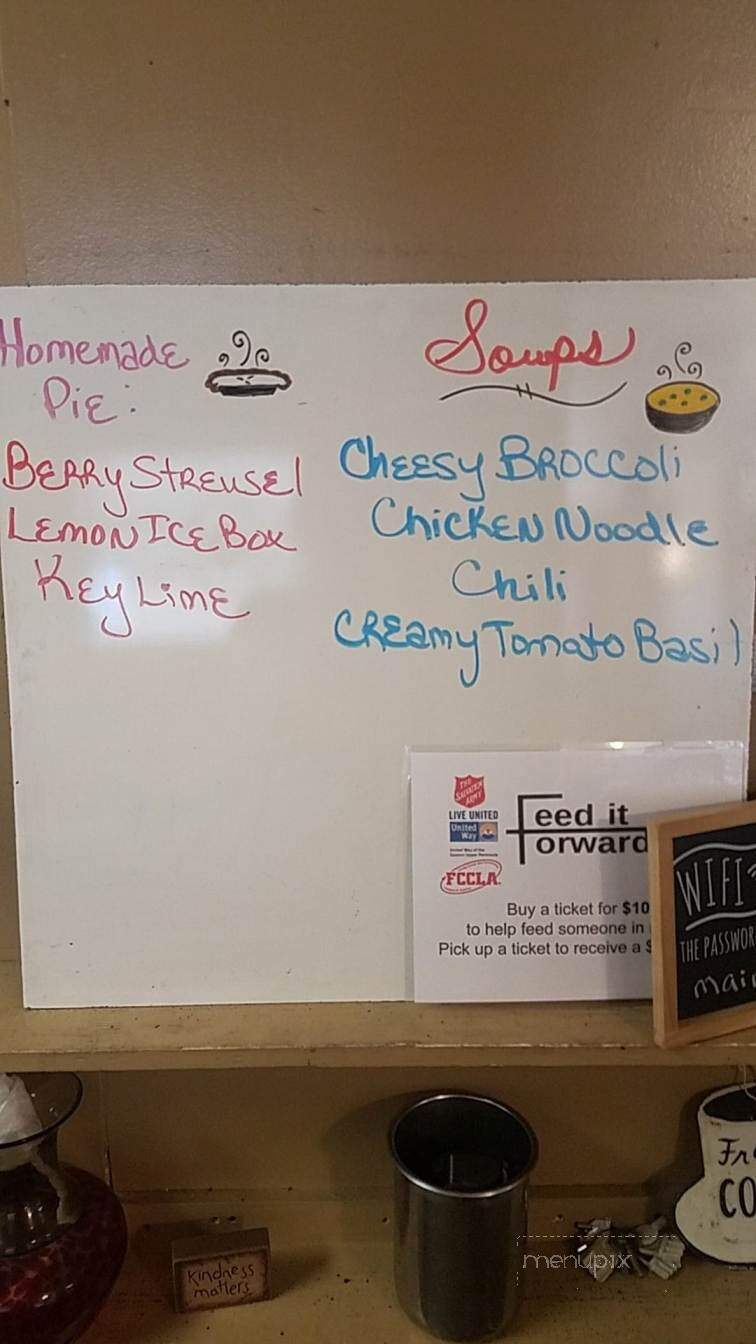 Homemade
Pie:
Berry Streusel
Lemon Ice Box
Key Lime
Soups
Cheesy Broccoli
Chicken Noodle
Chili
Creamy Tomato Basil
THE
SALVATION
ARMY
LIVE UNITED
United
Way
FCCLA
Feed it
Forward
Buy a ticket for $10
to help feed someone in
Pick up a ticket to receive a $
WIFI
THE
kindness
matters
menupix